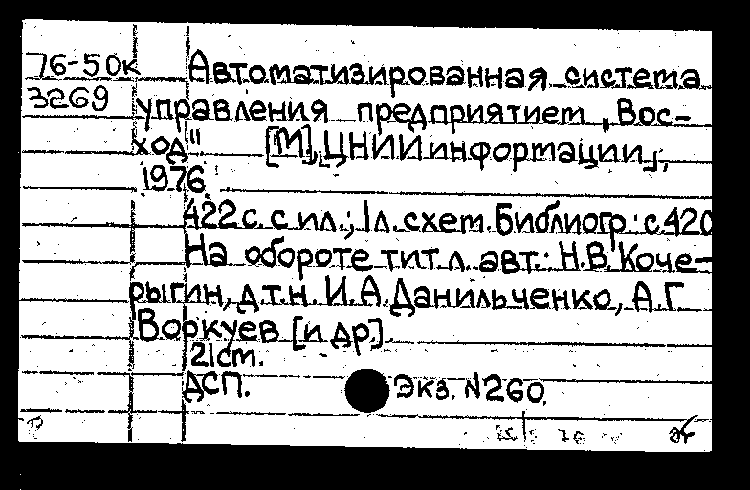 76-50к Автоматизированная система
3269 управления предприятием „Вос-
ход" [М], ЦНИИинформации,
1976.
422 с. с ил.; 1 л. схем. Библиогр.: с. 420
На обороте тит. л. авт.: Н.В. Коче-
рыгин, д.т.н. И.А. Данильченко, А.Г.
Воркуев [и др.].
21 см.
ДСП. Экз. № 260.